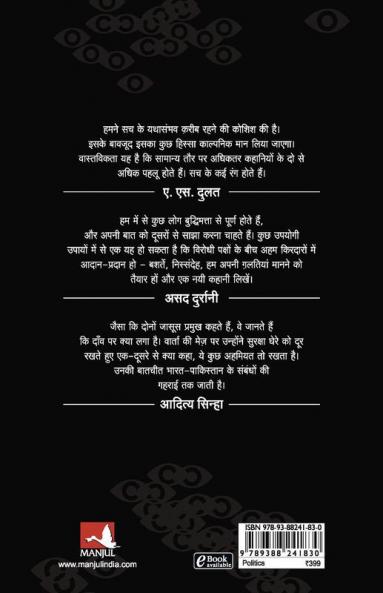 हमने सच के यथासंभव क़रीब रहने की कोशिश की है।
इसके बावजूद इसका कुछ हिस्सा काल्पनिक मान लिया जाएगा।
वास्तविकता यह है कि सामान्य तौर पर अधिकतर कहानियों के दो से
अधिक पहलू होते हैं। सच के कई रंग होते हैं।
ए. एस. दुलत
हम में से कुछ लोग बुद्धिमत्ता से पूर्ण होते हैं,
और अपनी बात को दूसरों से साझा करना चाहते हैं। कुछ उपयोगी
उपायों में से एक यह हो सकता है कि विरोधी पक्षों के बीच अहम किरदारों में
आदान-प्रदान हो - बशर्ते, निस्संदेह, हम अपनी ग़लतियां मानने को
तैयार हों और एक नयी कहानी लिखें।
असद दुर्रानी
जैसा कि दोनों जासूस प्रमुख कहते हैं, वे जानते हैं
कि दाँव पर क्या लगा है। वार्ता की मेज़ पर उन्होंने सुरक्षा घेरे को दूर
रखते हुए एक-दूसरे से क्या कहा, ये कुछ अहमियत तो रखता है।
उनकी बातचीत भारत-पाकिस्तान के संबंधों की
गहराई तक जाती है।
आदित्य सिन्हा
MANJUL
www.manjulindia.com
eBook
available
ISBN 978-93-88241-83-0
9 789388 241830
Politics ₹399